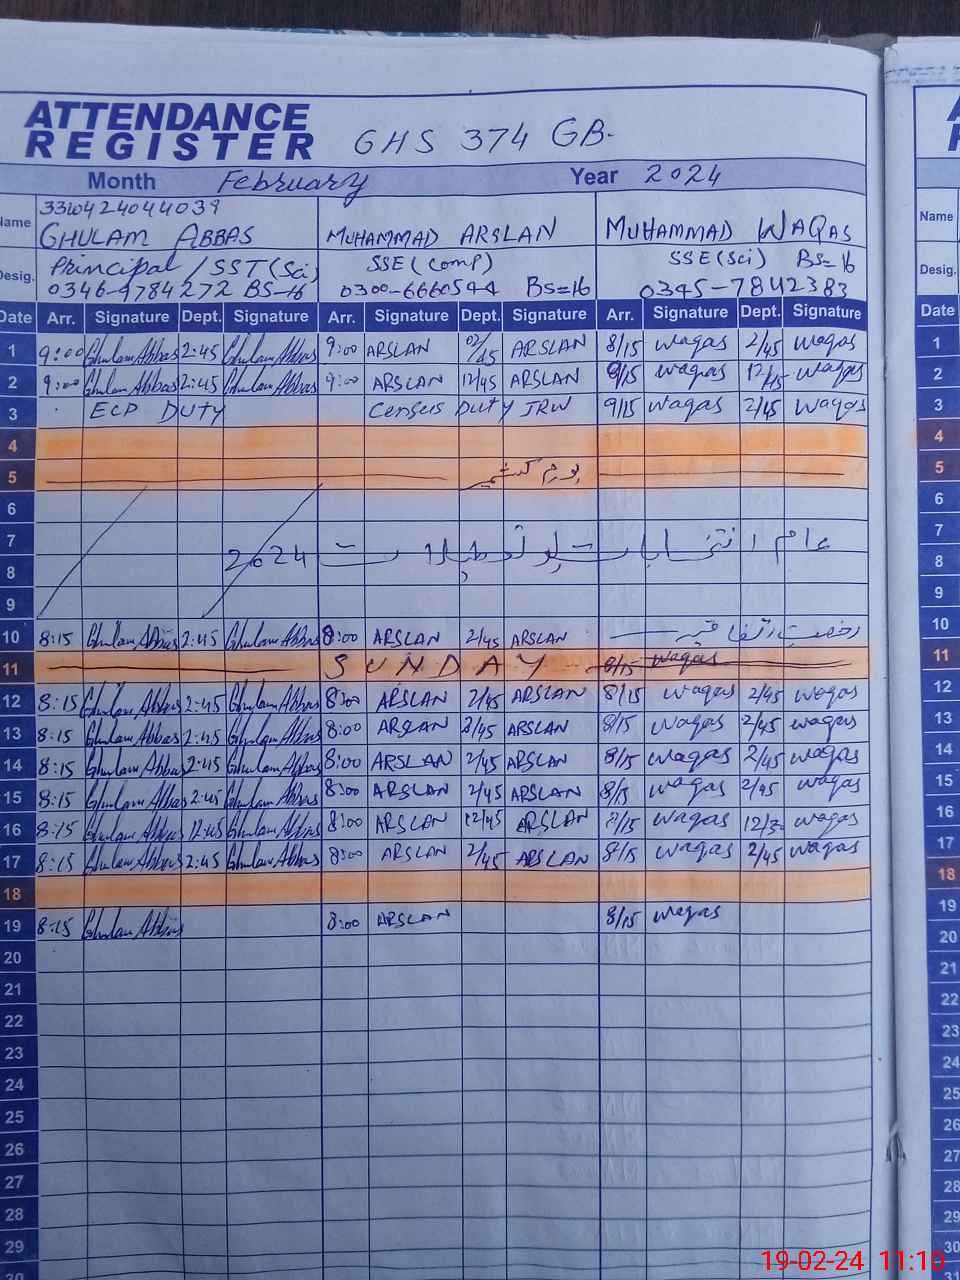 ATTENDANCE
REGISTER GHS 374 GB.
Month February Year 2024
Name GHULAM ABBAS MUHAMMAD ARSLAN MUHAMMAD WAQAS Name
Desig. Principal / SST (Sci) SSE (Comp) SSE (Sci) BS=16 Desig.
0346-9784272 BS-16 BS=16 0345-7842383
Date Arr. Signature Dept. Signature Arr. Signature Dept. Signature Arr. Signature Dept. Signature Date
1 9:00 Ghulam Abbas 2:45 Ghulam Abbas 9:00 ARSLAN ARSLAN 8/15 waqas 2/45 waqas 1
2 9:00 Ghulam Abbas 2:45 Ghulam Abbas 9:00 ARSLAN 12/45 ARSLAN waqas waqas 2
3 ECP DUTY Census Duty 9/15 waqas 2/45 waqas 3
4 4
5 یوم کشمیر 5
6 6
7 عام انتخابات 2024 7
8 8
9 9
10 8:15 Ghulam Abbas 2:45 Ghulam Abbas 8:00 ARSLAN 2/45 ARSLAN رخصت اتفاقیہ 10
11 SUNDAY 8/15 waqas 11
12 8:15 Ghulam Abbas 2:45 Ghulam Abbas 8:00 ARSLAN 2/45 ARSLAN 8/15 waqas 2/45 waqas 12
13 8:15 Ghulam Abbas 2:45 Ghulam Abbas 8:00 ARSLAN 2/45 ARSLAN 8/15 waqas 2/45 waqas 13
14 8:15 Ghulam Abbas 2:45 Ghulam Abbas 8:00 ARSLAN 2/45 ARSLAN 8/15 waqas 2/45 waqas 14
15 8:15 Ghulam Abbas 2:45 Ghulam Abbas 8:00 ARSLAN 2/45 ARSLAN 8/15 waqas 2/45 waqas 15
16 8:15 Ghulam Abbas 12:45 Ghulam Abbas 8:00 ARSLAN 12/45 ARSLAN waqas waqas 16
17 8:15 Ghulam Abbas 2:45 Ghulam Abbas 8:00 ARSLAN 2/45 ARSLAN 8/15 waqas 2/45 waqas 17
18 18
19 8:15 Ghulam Abbas 8:00 ARSLAN 8/15 waqas 19
20 20
21 21
22 22
23 23
24 24
25 25
26 26
27 27
28 28
29 29
30 30
19-02-24 11:10